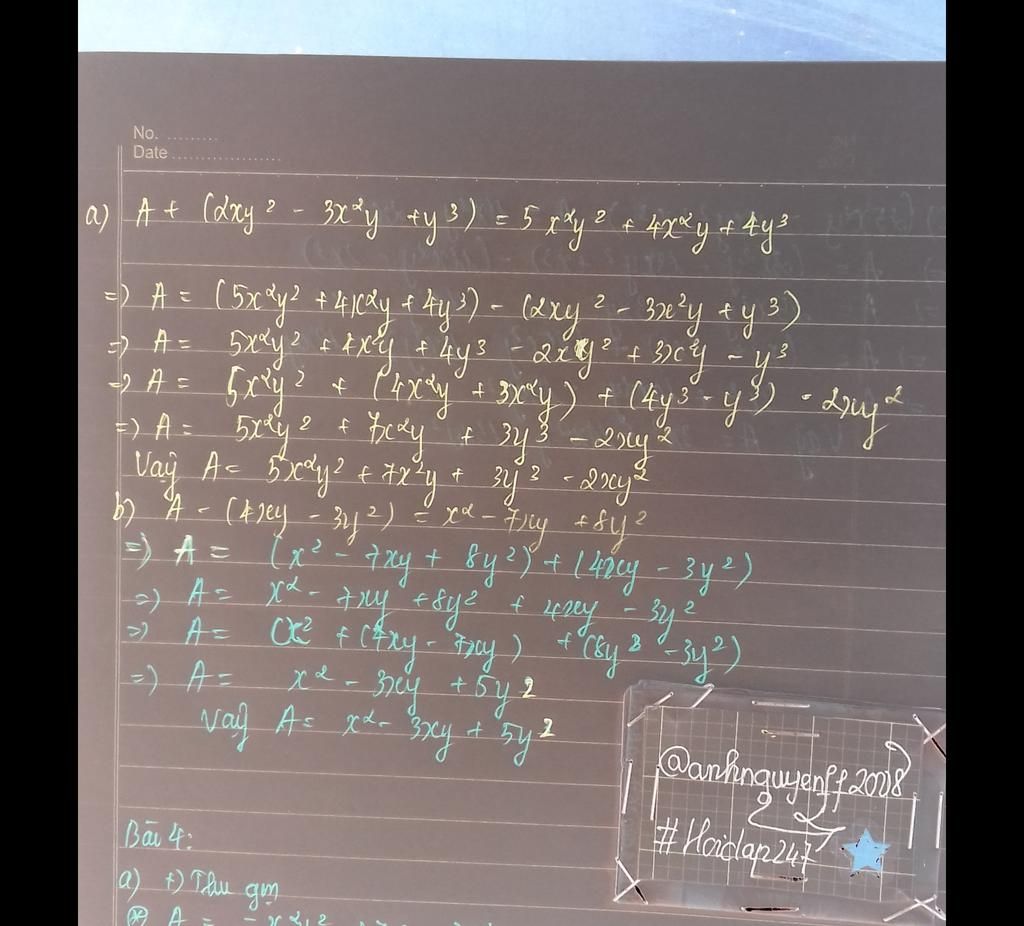 No. ........
Date ..................
a) A + (2xy² - 3x²y + y³) = 5x²y² + 4x²y + 4y³
=) A = (5x²y² + 4x²y + 4y³) - (2xy² - 3x²y + y³)
=) A = 5x²y² + 4x²y + 4y³ - 2xy² + 3x²y - y³
=) A = 5x²y² + (4x²y + 3x²y) + (4y³ - y³) - 2xy²
=) A = 5x²y² + 7x²y + 3y³ - 2xy²
Vậy A = 5x²y² + 7x²y + 3y³ - 2xy²
b) A - (4xy - 3y²) = x² - 7xy + 8y²
=) A = (x² - 7xy + 8y²) + (4xy - 3y²)
=) A = x² - 7xy + 8y² + 4xy - 3y²
=) A = x² + (4xy - 7xy) + (8y² - 3y²)
=) A = x² - 3xy + 5y²
Vậy A = x² - 3xy + 5y²
@anhnguyenff2008
#Hoidap247
Bài 4:
a) +) Thu gọn
A = - x²y²